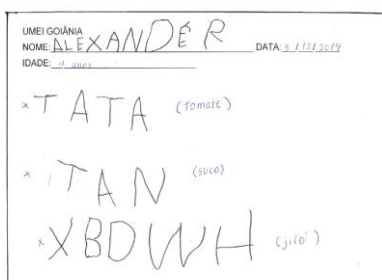 UMEI GOIÂNIA
NOME: ALEXANDÉR DATA: 5/12/2014
IDADE: 4 anos
x TATA (Tomate)
x ITAN (suco)
x XBDWH (jiló)